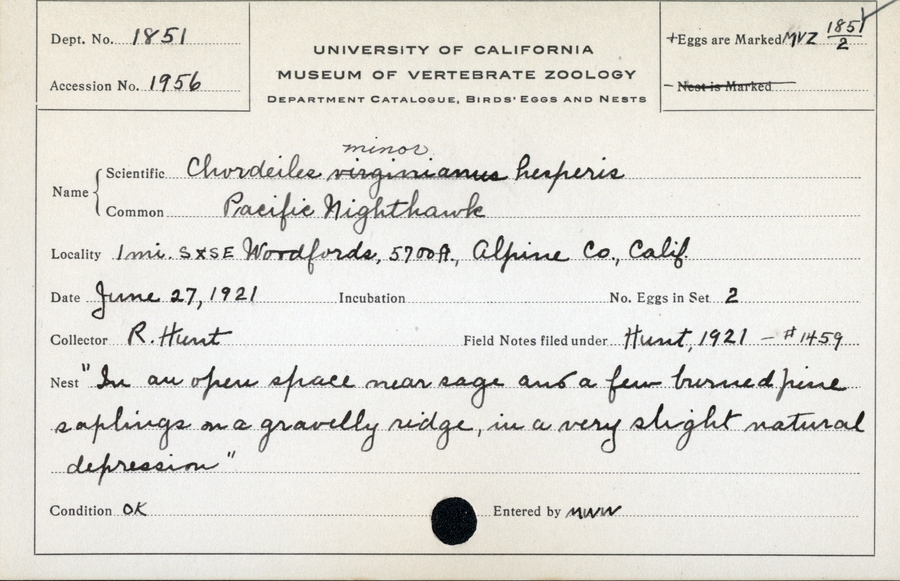 Dept. No. 1851
Accession No. 1956
UNIVERSITY OF CALIFORNIA
MUSEUM OF VERTEBRATE ZOOLOGY
DEPARTMENT CATALOGUE, BIRDS' EGGS AND NESTS
+Eggs are Marked MVZ 1851/2
– Nest is Marked
minor
Name { Scientific Chordeiles virginianus hesperis
Common Pacific Nighthawk
Locality 1mi. SxSE Woodfords, 5700ft., Alpine Co., Calif.
Date June 27, 1921 Incubation No. Eggs in Set 2
Collector R. Hunt Field Notes filed under Hunt, 1921 – #1459
Nest "In an open space near sage and a few burned pine
saplings on a gravelly ridge, in a very slight natural
depression"
Condition OK Entered by MWW